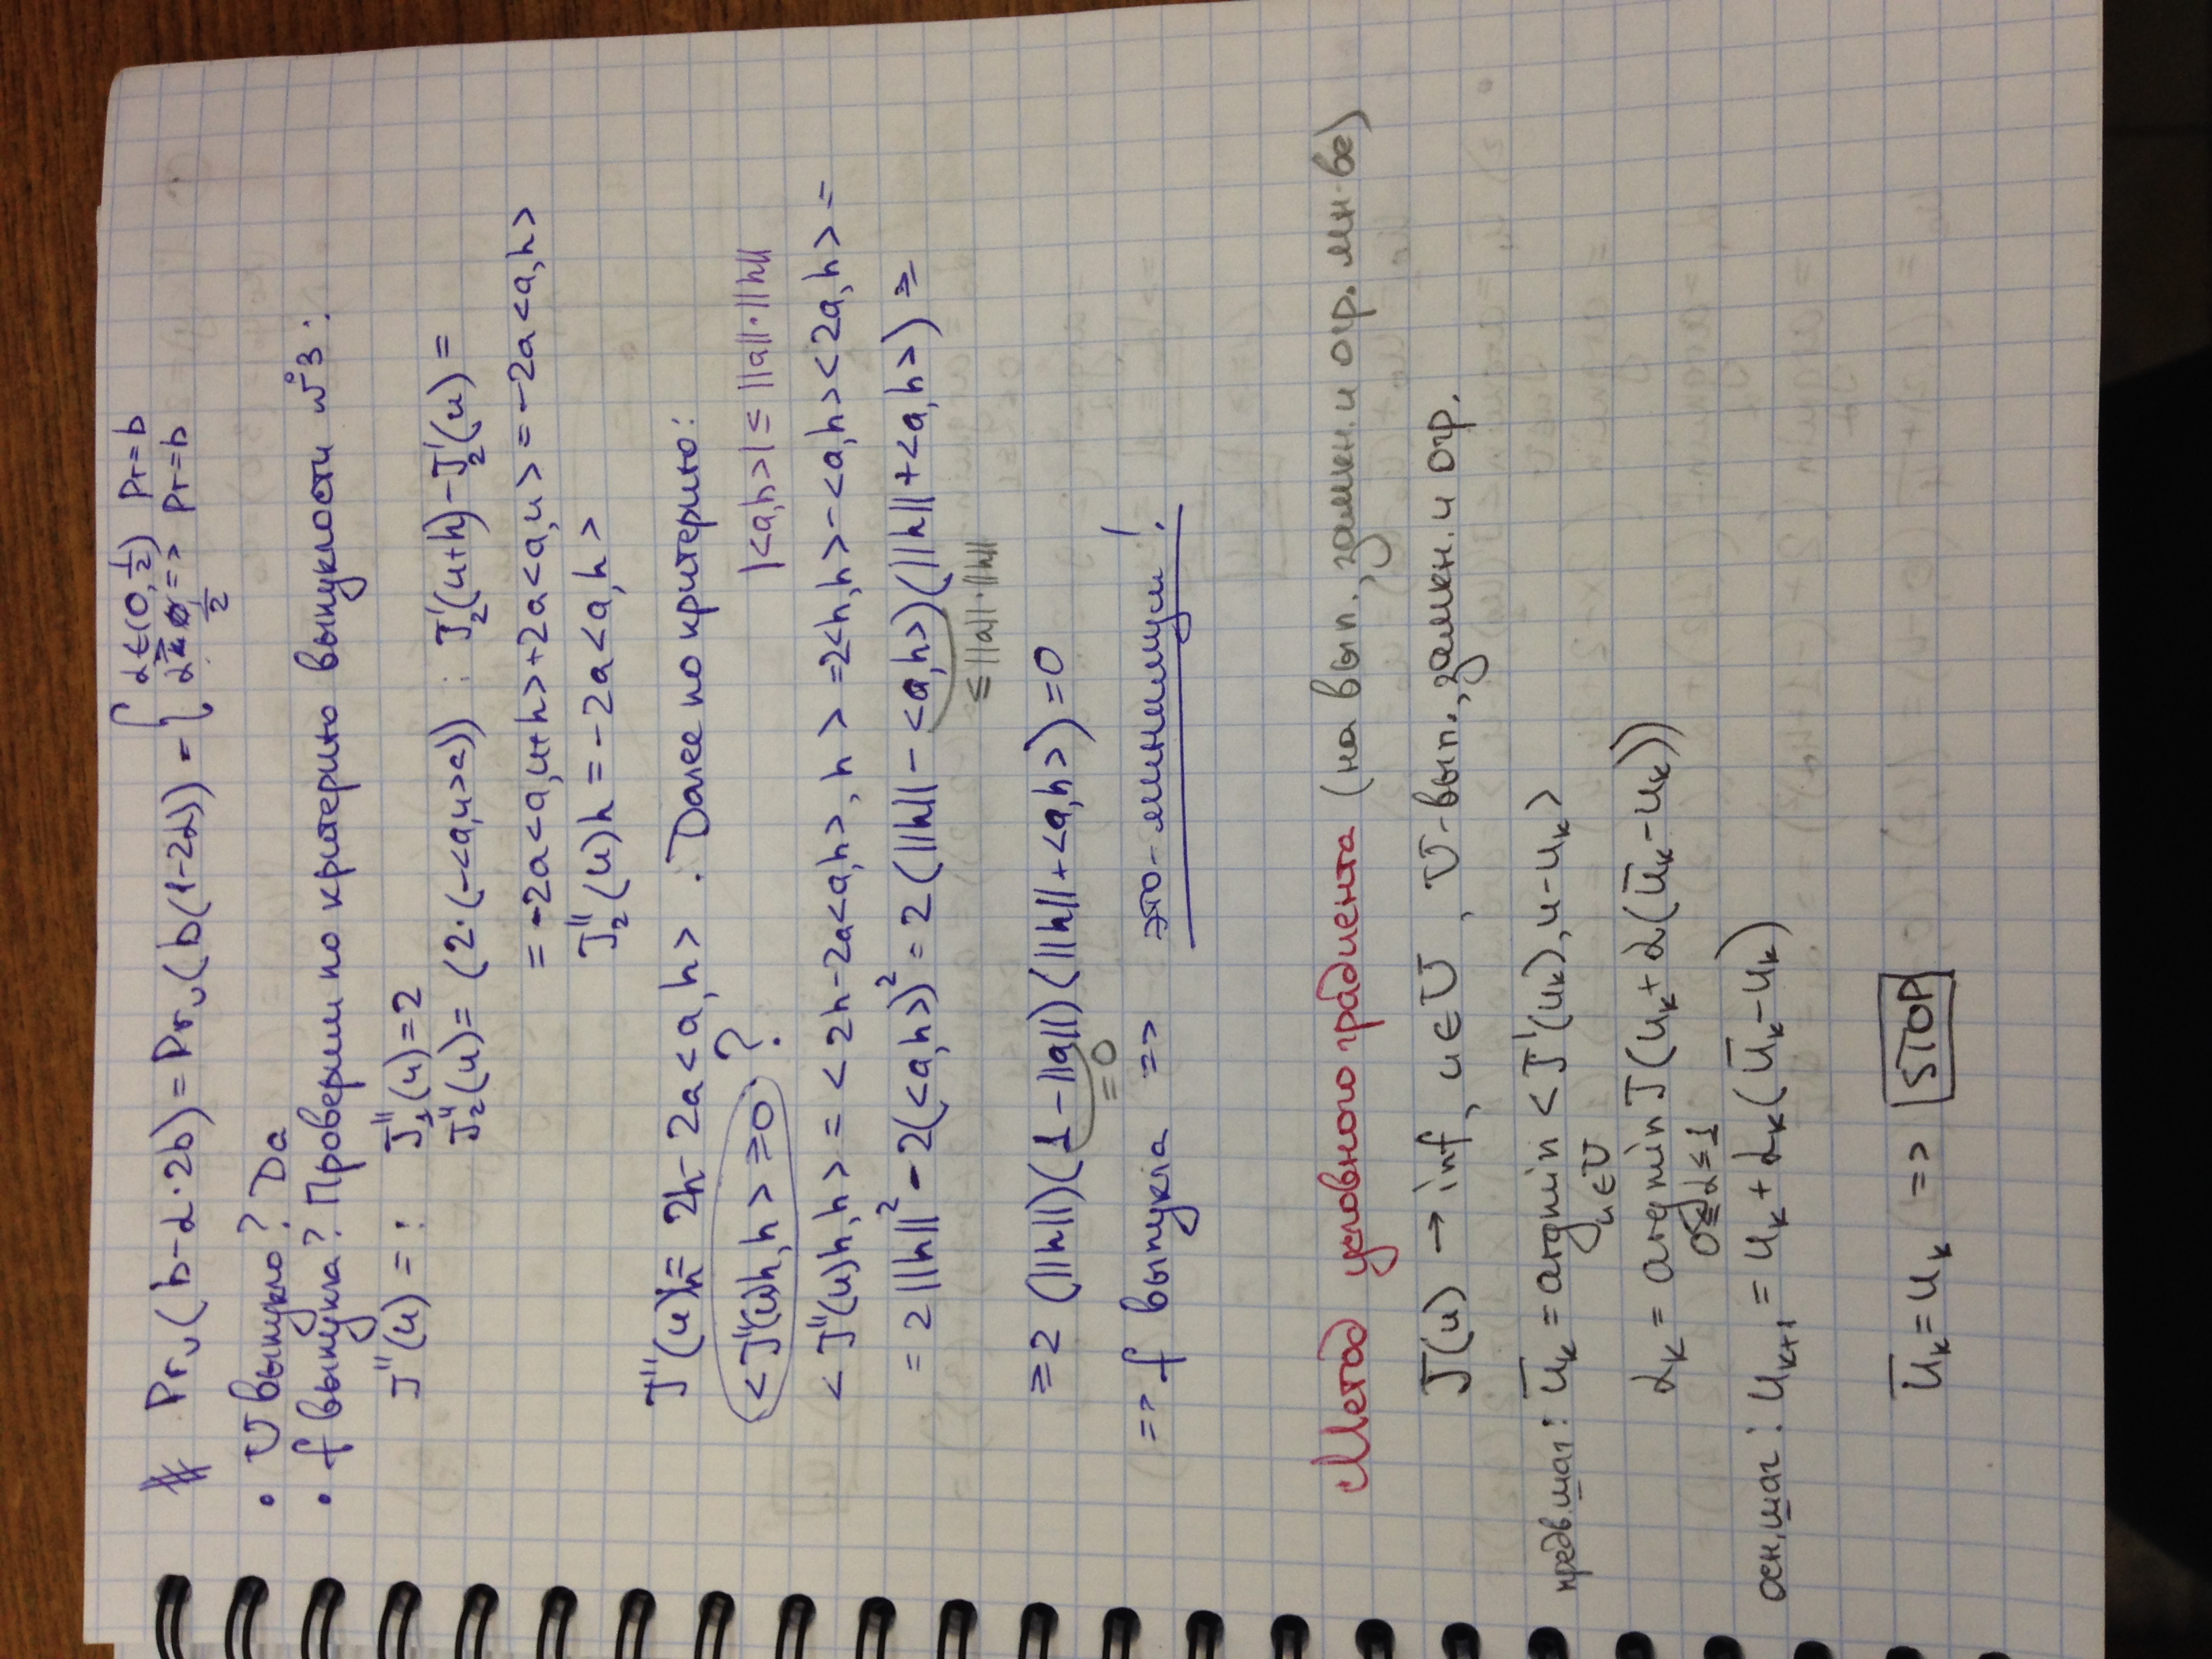 # Pr_U(b-α·2b) = Pr_U(b(1-2α)) = { α∈(0, 1/2) Pr=b
α = 1/2 => Pr=b
• U выпукло? Да
• f выпукла? Проверим по критерию выпуклости №3:
J''(u) = : J₁''(u)=2
J₂''(u) = (2·(-<a,u>a)) : J₂'(u+h)-J₂'(u) =
= -2a<a,u+h>+2a<a,u> = -2a<a,h>
J₂''(u)h = -2a<a,h>
J''(u)h = 2h-2a<a,h> . Далее по критерию:
<J''(u)h,h> ≥0 ? |<a,h>| ≤ ||a||·||h||
<J''(u)h,h> = <2h-2a<a,h>,h> = 2<h,h>-<a,h><2a,h> =
= 2||h||²-2(<a,h>)² = 2(||h||-<a,h>)(||h||+<a,h>) ≥
≤ ||a||·||h||
≥ 2(||h||)(1-||a||)(||h||+<a,h>)=0
=0
=> f выпукла => это - минимумы!
Метод условного градиента (на вып., замкн. и огр. мн-ве)
J(u) → inf, u∈U, U-вып., замкн. и огр.
предв. шаг: ū_k = argmin <J'(u_k), u-u_k>
u∈U
α_k = argmin J(u_k+α(ū_k-u_k))
0≤α≤1
осн. шаг: u_{k+1} = u_k+α_k(ū_k-u_k)
ū_k = u_k => STOP